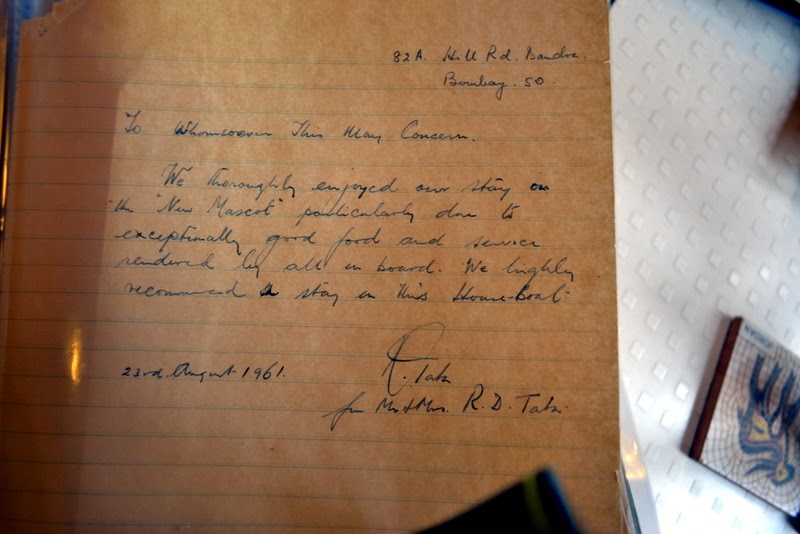 82A. Hill Rd. Bandra.
Bombay. 50.
To Whomsoever This May Concern.
We thoroughly enjoyed our stay on
the "New Mascot" particularly due to
exceptionally good food and service
rendered by all on board. We highly
recommend a stay on this House-boat
23rd August 1961.
R. Tata
for Mr & Mrs. R. D. Tata.